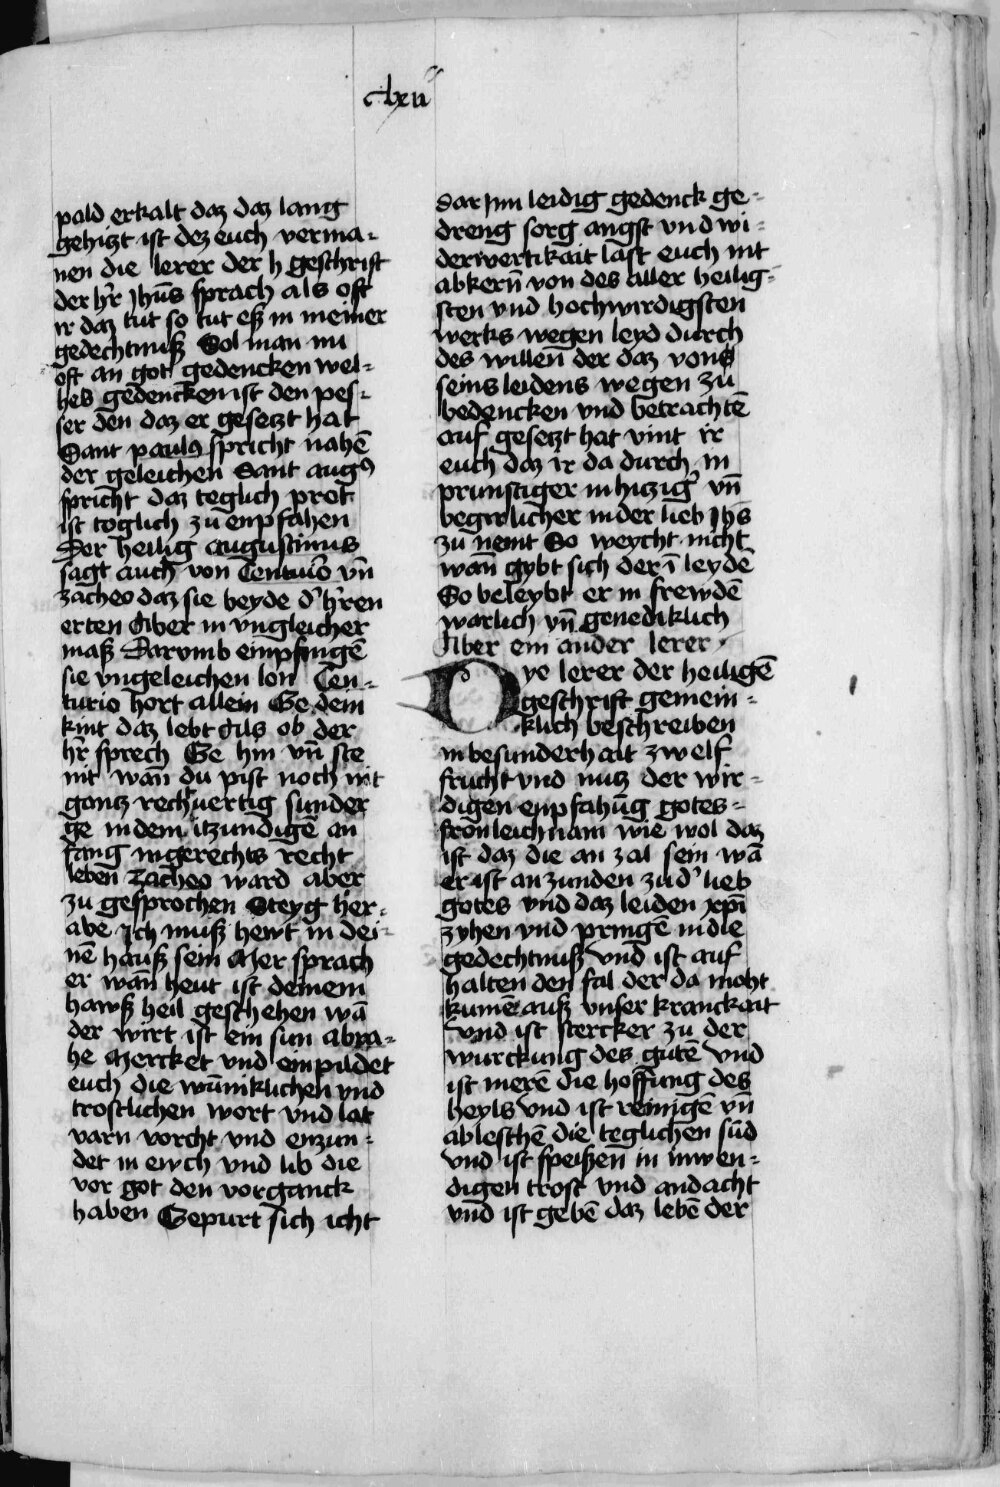 clxii
pald erkalt daz daz lang
gehitzt ist dez euch verma-
nen die lerer der h geschrift
der hr̄ Jhūs sprach als oft
ir daz tut so tut eß in meiner
gedechtnuß Sol man nu
oft an got gedencken wel-
hes gedencken ist den pes-
ser den daz er gesetzt hat
Sant paulꝯ spricht nahē
der geleichen Sant augꝯ
spricht daz teglich prot
ist toglich zu enpfahen
Der heilig augustinus
sagt auch von Centurio vn̄
zacheo daz sie beyde d' hr̄ren
erten Aber in vngleicher
maß Darvmb empfingē
sie vngeleichen lon Cen-
turio hort allein Ge dein
kint daz lebt Als ob der
hr̄ sprech Ge hin vn̄ ste
nit wān du pist noch nit
gantz rechtvertig sunder
ge in dem itzundigē an
fang ingerechts recht
leben Zacheo ward aber
zu gesprochen Steyg her-
abe Ich muß hewt in dei-
nē hauß sein Mer sprach
er wān heut ist deinem
hawß heil geschehen wā
der wirt ist ein sun abra-
he Mercket vnd einpildet
euch die wūniklichen vnd
trostlichen wort vnd lat
varn vorcht vnd enzun-
det in ewch vnd lib die
vor got den vorganck
haben Gepurt sich icht
dar Inn leidig gedenck ge-
dreng sorg angst vnd wi-
derwertikait last euch nit
abkern̄ von des aller heilig-
sten vnd hochwirdigsten
werks wegen leyd durch
des willen̄ der daz vons
seins leidens wegen zu
bedencken vnd betrachtē
auf gesetzt hat vint ir
euch daz ir da durch in
prunstiger in hizig' vn̄
begirlicher in der lieb Jhs̄
zu nemt So weycht nicht
wān gybt sich der ī leydē
So beleybt er in frewdē
warlich vn̄ genediklich
Aber ein ander lerer
Dye lerer der heiligē
geschrift gemein-
klich beschreiben
in besunderhait zwelf
frucht vnd nutz der wir-
digen enpfahūg gotes-
fronleichnam wie wol daz
ist daz die an zal sein wā
er ist anzunden zu d' lieb
gotes vnd daz leiden xp̄i
zyhen vnd pringē in die
gedechtnuß vnd ist auf
halten den fal der da moht
kumē auß vnser kranckait
vnd ist stercker zu der
wurckung des gutē vnd
ist merē die hoffung des
heyls vnd ist reinigē vn̄
ableschē die teglichen sūd
vnd ist speißen̄ in inwen-
digen trost vnd andacht
vnd ist gebē daz lebē der